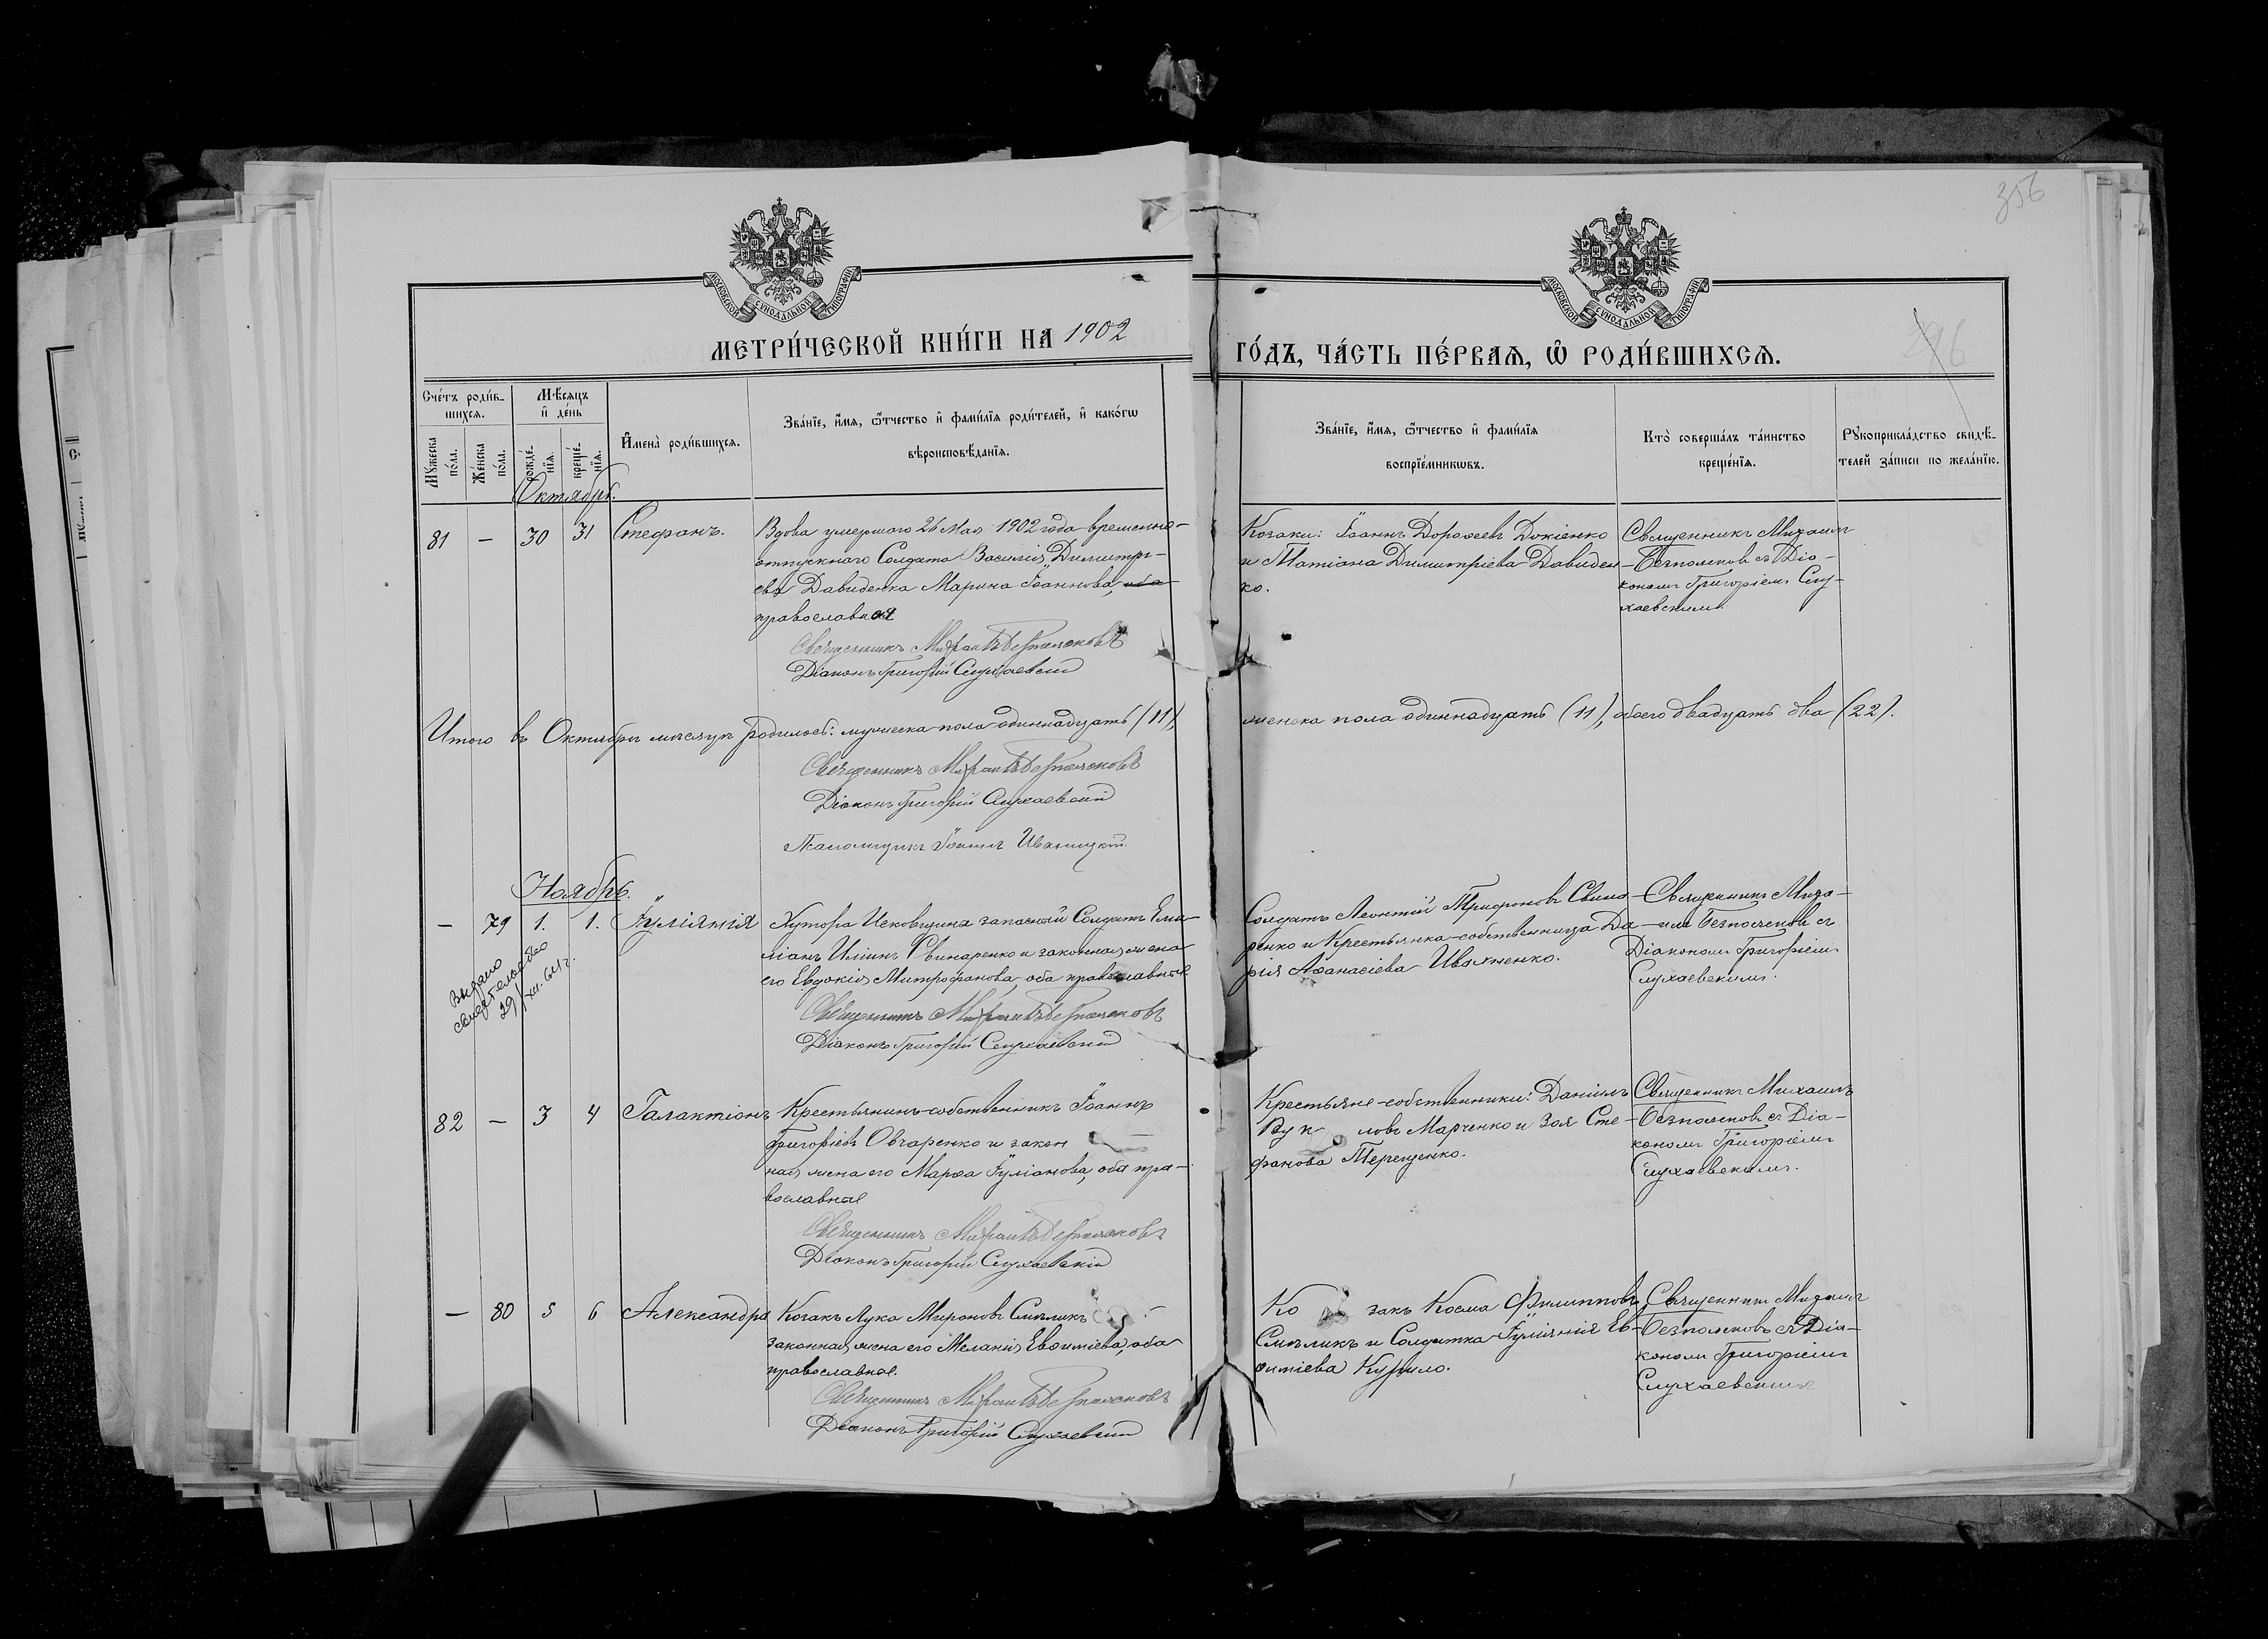 356
МОСКОВСКОЙ СУНОДАЛЬНОЙ ТИПОГРАФІИ
МОСКОВСКОЙ СУНОДАЛЬНОЙ ТИПОГРАФІИ
МЕТРИ́ЧЕСКОЙ КНИ́ГИ НА 1902
ГО́ДЪ, ЧА́СТЬ ПЕ́РВАѦ, Ѡ РОДИ́ВШИХСѦ.
Сче́тъ роди́в-
шихсѧ.
Мꙋ́жеска
по́ла.
Же́нска
по́ла.
Мѣ́сѧцъ
и҆ де́нь
рожде́-
нїѧ.
креще́-
нїѧ.
И҆мена̀ роди́вшихсѧ.
Зва́нїе, и҆́мѧ, ѻ҆́тчество и҆ фами́лїѧ роди́телей, и҆ како́гѡ
вѣроисповѣ́данїѧ.
Зва́нїе, и҆́мѧ, ѻ҆́тчество и҆ фами́лїѧ
воспрїе́мникѡвъ.
Кто̀ соверша́лъ та́инство
креще́нїѧ.
Рꙋкоприкла́дство свидѣ́-
телей за́писи по жела́нїю.
Октябрь.
81 — 30 31 Стефанъ.
Вдова умершаго 26 Мая 1902 года временно-
отпускнаго Солдата Василія Димитрі-
ева Давиденка Марина Іоаннова, оба
православная
Священникъ Михаилъ Безпалековъ
Діаконъ Григорій Слухаевскій
Козаки: Іоаннъ Дороѳеевъ Докіенко
и Татіана Димитріева Давиден-
ко.
Священникъ Михаилъ
Безполековъ съ Діа-
кономъ Григоріемъ Слу-
хаевскимъ.
Итого въ Октябрѣ мѣсяцѣ родилось: мужеска пола одиннадцать (11),
женска пола одиннадцать (11), обоего двадцать два (22).
Священникъ Михаилъ Безпалековъ
Діаконъ Григорій Слухаевскій
Псаломщикъ Іоаннъ Иваницкій.
Ноябрь.
— 79 1. 1. Іуліянія
Хутора запасный Солдатъ Еми-
ліанъ Иліинъ Свинаренко и законная жена
его Евдокія Митрофанова, оба православные
Священникъ Михаилъ Безпалековъ
Діаконъ Григорій Слухаевскій
Выдано
свидетельство
29/XII.64 г.
Солдатъ Леонтій Трифоновъ Свина-
ренко и Крестьянка-собственница Да-
рія Аѳанасіева Иваненко.
Священникъ Миха-
илъ Безполековъ съ
Діакономъ Григоріемъ
Слухаевскимъ.
82 — 3 4 Галактіонъ
Крестьянинъ-собственникъ Іоаннъ
Григоріевъ Овчаренко и закон
ная жена его Марѳа Іуліанова, оба пра-
вославные
Священникъ Михаилъ Безпалековъ
Діаконъ Григорій Слухаевскій
Крестьяне-собственники: Даніилъ
ловъ Марченко и Зоя Сте-
фанова Терещенко.
Священникъ Михаилъ
Безполековъ съ Діа-
кономъ Григоріемъ
Слухаевскимъ.
— 80 5 6 Александра
Козакъ Лука Мироновъ Смѣликъ
законная жена его Меланія Евѳиміева, оба
православные.
Священникъ Михаилъ Безпалековъ
Діаконъ Григорій Слухаевскій
Ко закъ Косма Филипповъ
Смѣликъ и Солдатка Іуліянія Ев-
ѳиміева Курило.
Священникъ Михаилъ
Безполековъ съ Діа-
кономъ Григоріемъ
Слухаевскимъ